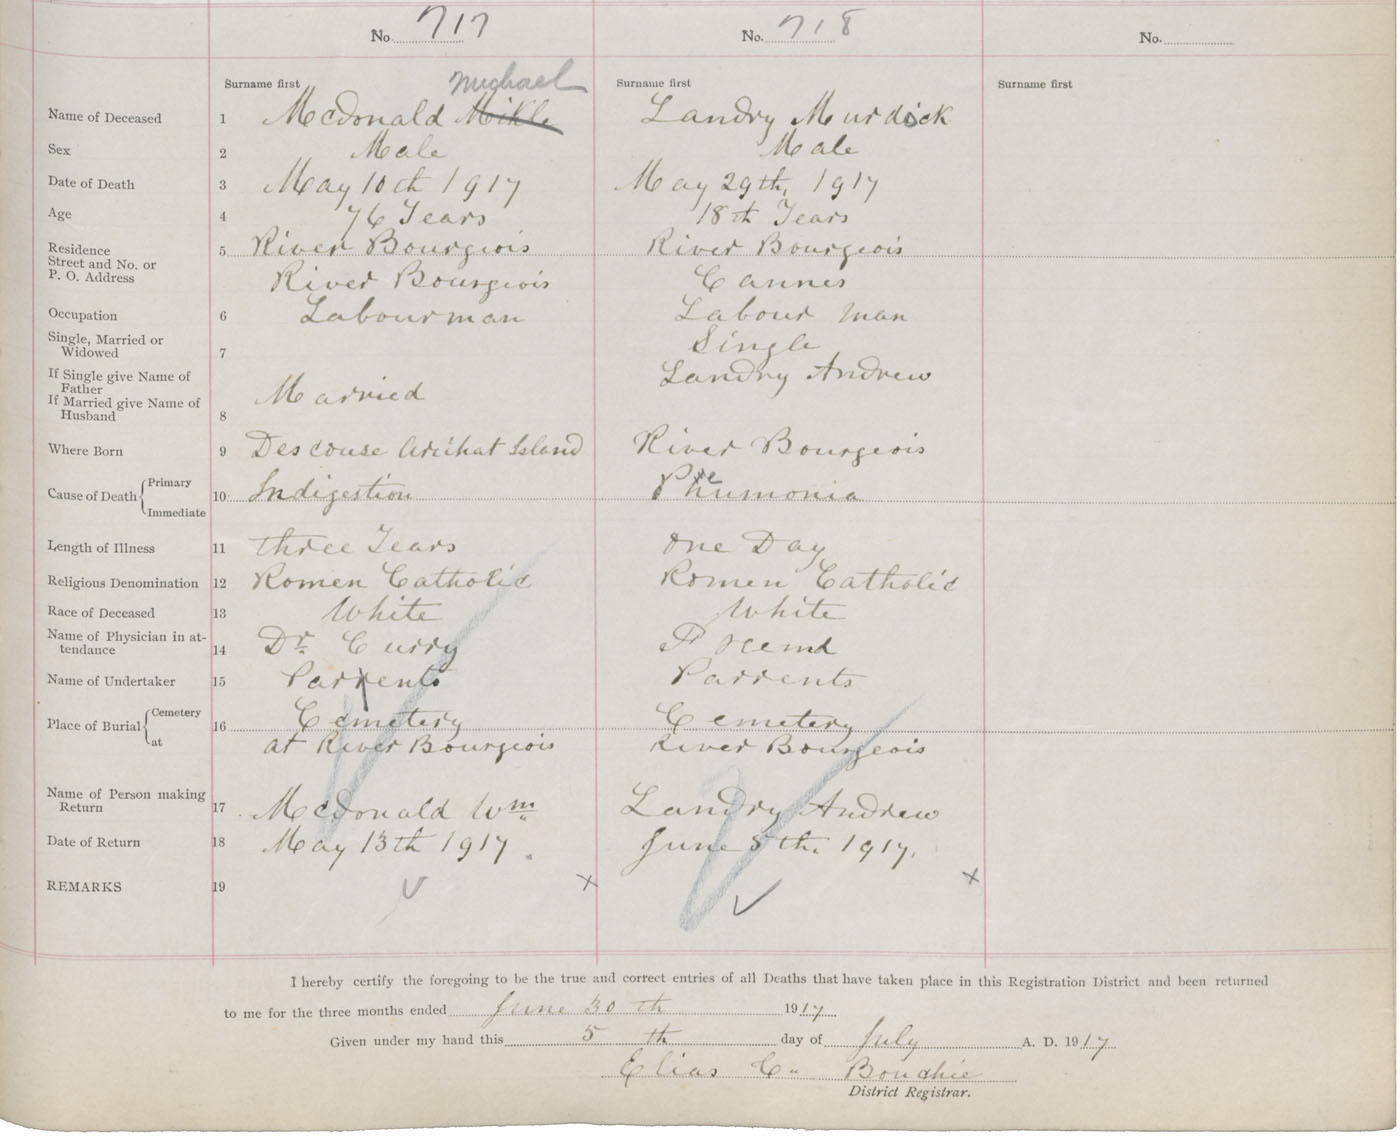 No. 717
No. 718
No.
Surname first
Michael
Surname first
Surname first
Name of Deceased 1 McDonald Mikle Landry Murdock
Sex 2 Male Male
Date of Death 3 May 10th 1917 May 29th, 1917
Age 4 76 Years 18th Years
Residence 5 River Bourgeois River Bourgeois
Street and No. or
P. O. Address River Bourgeois Cannes
Occupation 6 Labourman Labour man
Single, Married or
Widowed 7 Single
If Single give Name of
Father Landry Andrew
If Married give Name of
Husband 8 Married
Where Born 9 Descouse Arichat Island River Bourgeois
Cause of Death { Primary
10 Indigestion Pneumonia
Immediate
Length of Illness 11 three Years one Day
Religious Denomination 12 Romen Catholic Romen Catholic
Race of Deceased 13 White White
Name of Physician in at-
tendance 14 Dr. Curry
Name of Undertaker 15 Parrents Parrents
Place of Burial { Cemetery 16 Cemetery Cemetery
at at River Bourgeois River Bourgeois
Name of Person making
Return 17 McDonald Wm. Landry Andrew
Date of Return 18 May 13th 1917. June 5th. 1917.
REMARKS 19
I hereby certify the foregoing to be the true and correct entries of all Deaths that have taken place in this Registration District and been returned
to me for the three months ended June 30th 1917
Given under my hand this 5th day of July A. D. 1917
Elias C. Bouchie
District Registrar.